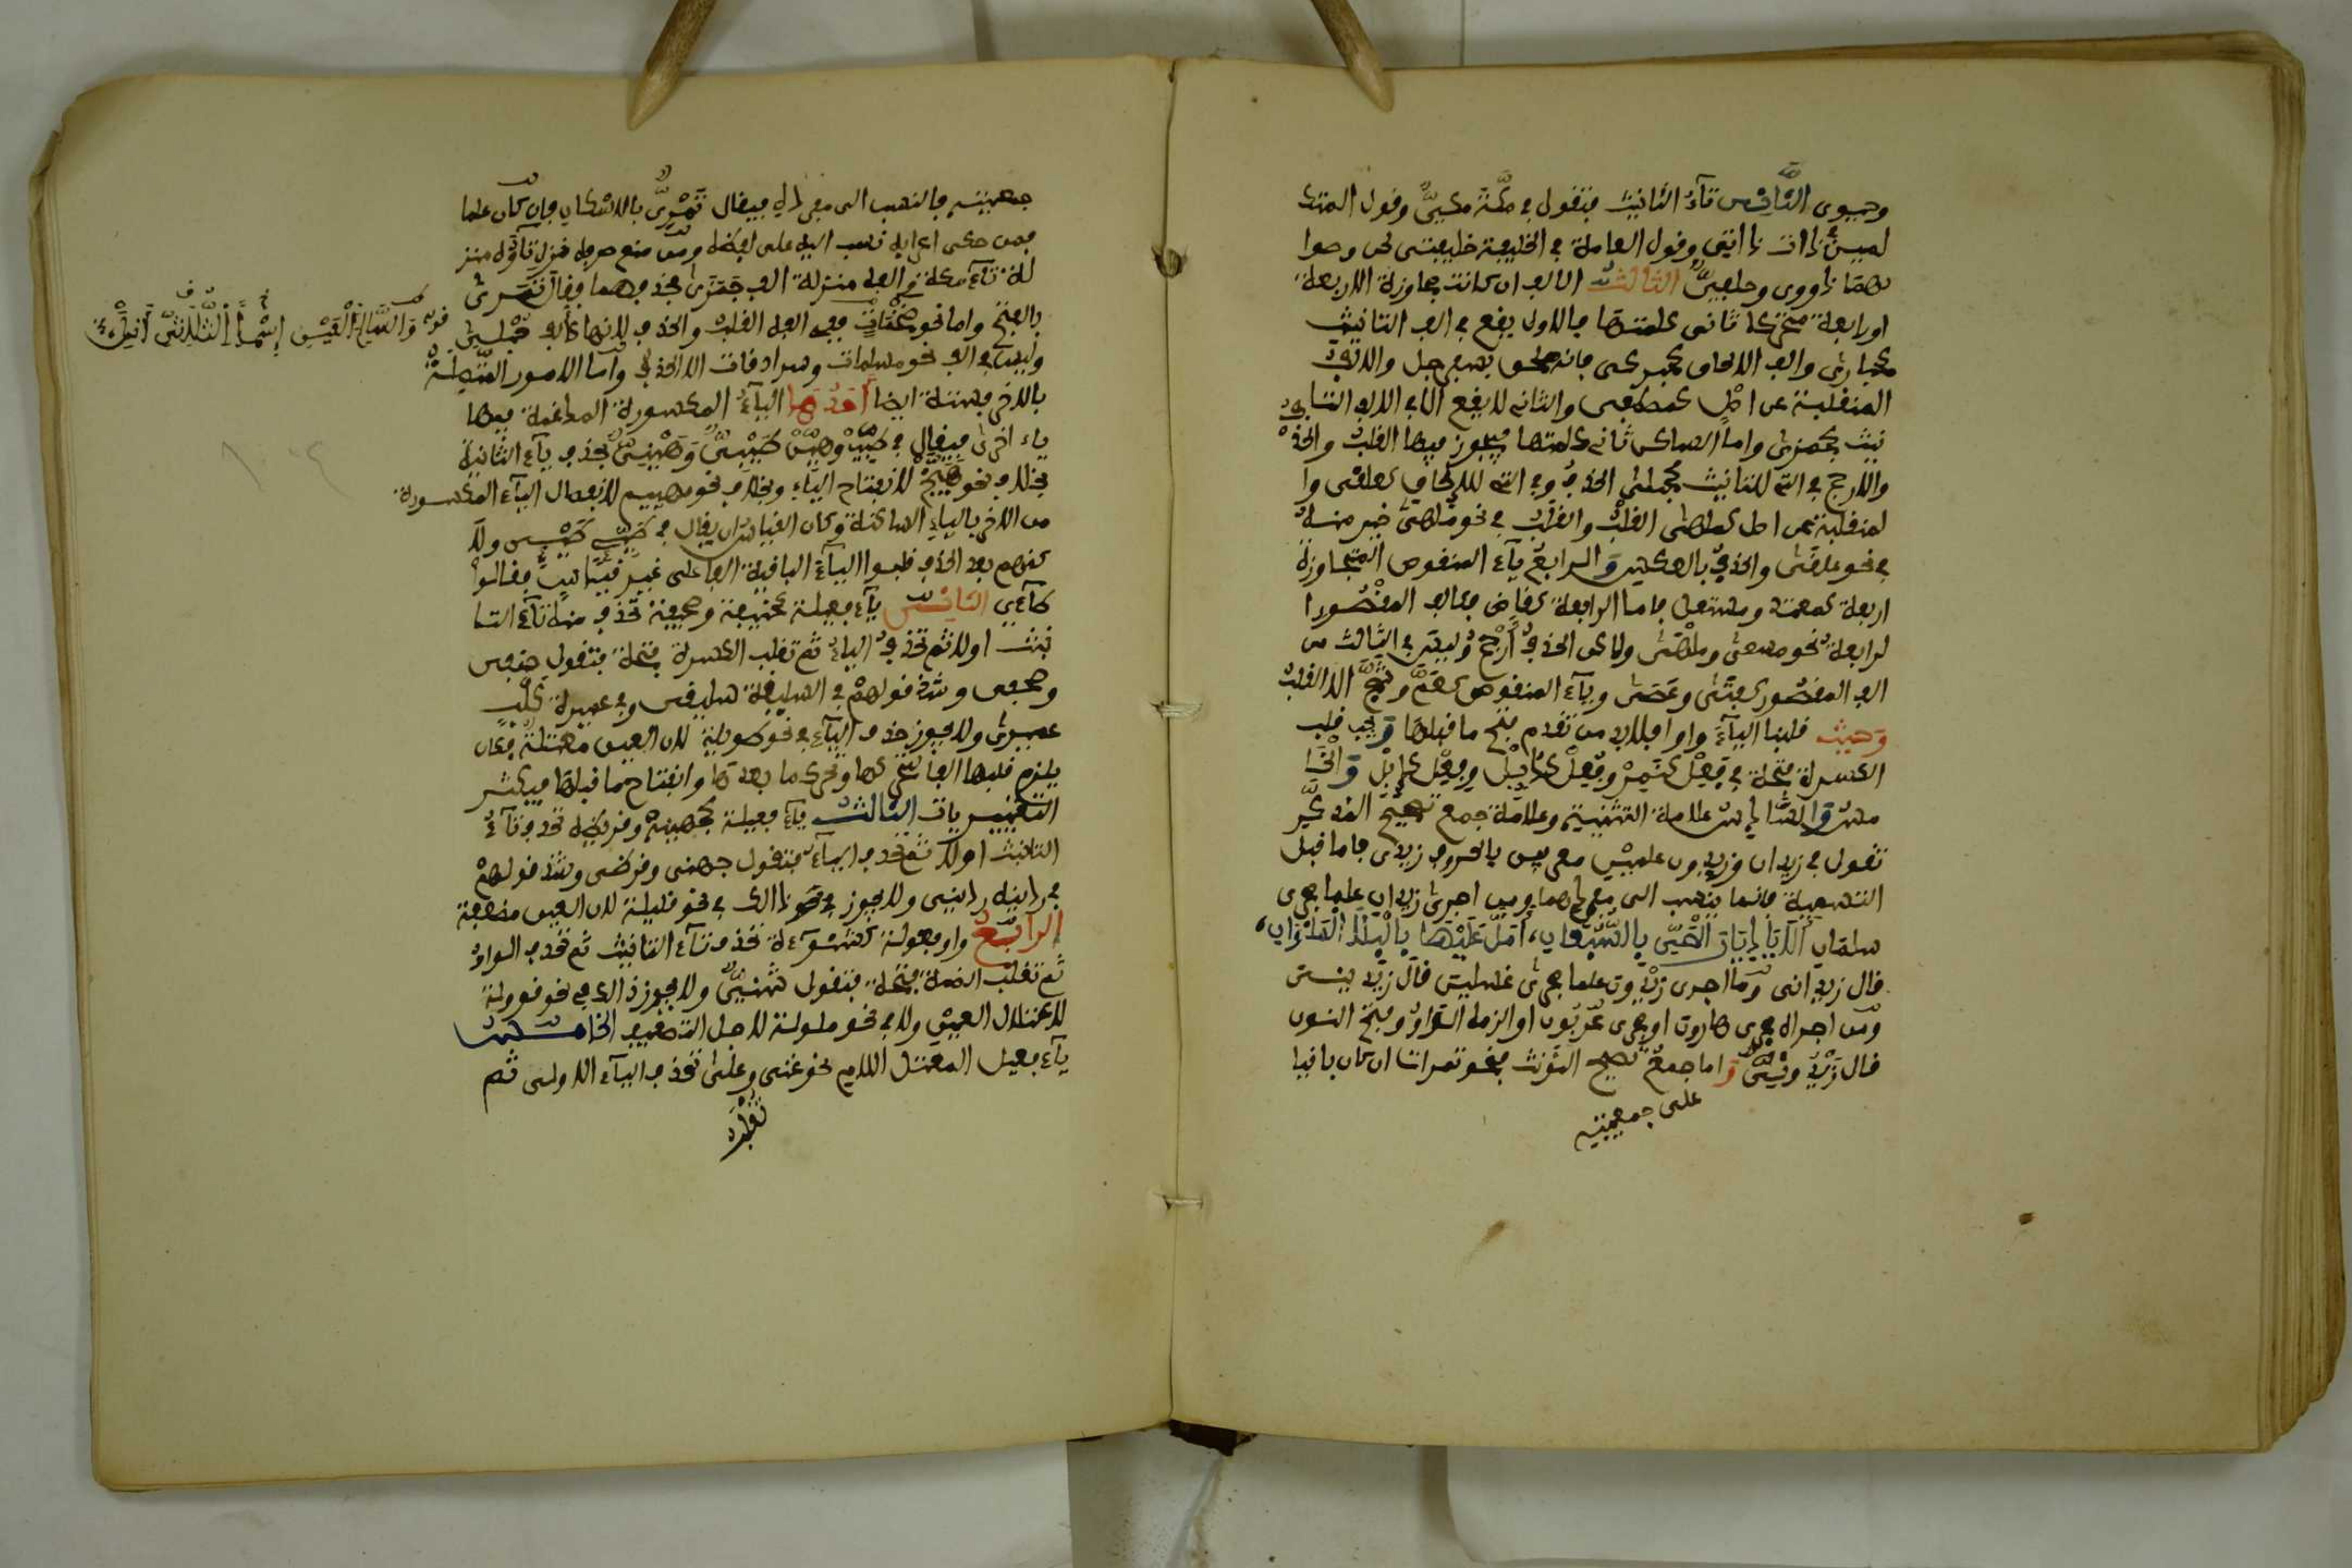 وحيوى الثاني تاء التانيث فتقول في مكة مكي وقول المتك
لمين في ذات ذاتي وقول العامة في الخليفة خليفتي لحن وصوا
بهما ذووي وخلفي الثالث الالف ان كانت مجاوزة الاربعة
او رابعة متحركا ثاني كلمتها فالاول يقع في الف التانيث
كحبارى والف الالحاق كحبركى فانه ملحق بسفرجل والالف
المنقلبة عن اصل كمصطفى والثاني لا يقع الا في الف التا
نيث كجمزى واما الساكن ثاني كلمتها فيجوز فيها القلب والحذف
والارجح في التي للتانيث كحبلى الحذف وفي التي للالحاق كعلقى وا
لمنقلبة عن اصل كملهى القلب والقلب في نحو ملهى خير منه
في نحو علقى والحذف بالعكس والرابع ياء المنقوص المتجاوزة
اربعة كمعتد ومستعل فاما الرابعة كقاض فكالف المقصور ا
لرابعة نحو مسعى وملهى ولكن الحذف ارجح وليس في الثالث من
الف المقصور كفتى وعصى وياء المنقوص كعم وشج الا القلب
وحيث قلبنا الياء واوا فلابد من تقدم فتح ما قبلها ويجب قلب
الكسرة فتحة في فعل كنمر وفعل كدئل وفعل كابل والخا
مس والسادس علامة التثنية وعلامة جمع تصحيح المذكر
تقول في زيدان وزيدون علمين معربين بالحروف زيدي فاما قبل
التسمية فانما ينسب الى مفردهما ومن اجرى زيدان علما مجرى
سلمان الا يا ديار الحي بالسبعان، امل عليها بالبلى الملوان،
قال زيداني ومن اجرى زيدون علما مجرى غسلين قال زيديني
ومن اجراه مجرى هارون او مجرى عربون او الزمه الواو وفتح النون
قال زيدوني واما جمع تصحيح المؤنث فنحو تمرات ان كان باقيا
على جمعيته
جمعيته فالنسب الى مفرده فيقال تمري بالاسكان وان كان علما
فمن حكى اعرابه نسب اليه على لفظه ومن منع صرفه نزل تاءه منز
لة تاء مكة والفه منزلة الف جمزى فحذفهما وقال تمري
بالفتح واما نحو ضخمات ففي الفه القلب والحذف لانها كالف حبلى
وليس في الف نحو مسلمات وسرادقات الا الحذف واما الامور المتصلة
بالاخر فستة ايضا احدها الياء المكسورة المدغمة فيها
ياء اخرى فيقال في طيب وهين طيبي وهيني بحذف ياء الثانية
بخلاف نحو هبيخ لانفتاح الياء وبخلاف نحو مهييم لانفصال الياء المكسورة
من الاخر بالياء الساكنة وكان القياس ان يقال في طيئ طيئي ولا
كنهم بعد الحذف قلبوا الياء الباقية الفا على غير قياس فقالوا
طائي الثاني ياء فعيلة كحنيفة وصحيفة تحذف منه تاء التا
نيث اولا ثم تحذف الياء ثم تقلب الكسرة فتحة فتقول حنفي
وصحفي وشذ قولهم في السليقة سليقي وفي عميرة كلب
عميري ولا يجوز حذف الياء في نحو طويلة لان العين معتلة فكان
يلزم قلبها الفا لتحركها وتحرك ما بعدها وانفتاح ما قبلها فيكثر
التغييرات الثالث ياء فعيلة كجهينة وقريظة تحذف تاء
التانيث اولا ثم تحذف الياء فتقول جهني وقرظي وشذ قولهم
في ردينة رديني ولا يجوز ذلك في نحو قليلة لان العين مضعفة
الرابع واو فعولة كشنوءة تحذف تاء التانيث ثم تحذف الواو
ثم تقلب الضمة فتحة فتقول شنئي ولا يجوز ذلك في نحو قوولة
لاعتلال العين ولا في نحو ملولة لاجل التضعيف الخامس
ياء فعيل المعتل اللام نحو غني وعلي تحذف الياء الاولى ثم
تقلب